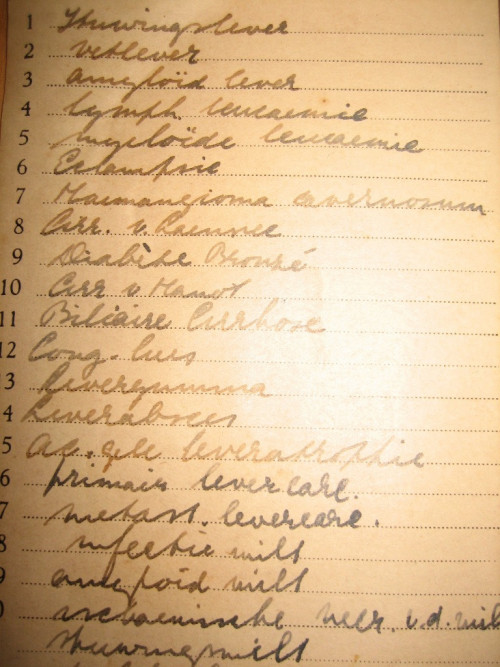 1 Stuwingslever
2 vetlever
3 amyloïd lever
4 lymph. leucaemie
5 myeloïde leucaemie
6 Eclampsie
7 Haemangioma cavernosum
8 Cirr. v. Laennec
9 Diabète Bronzé
10 Cirr v Hanot
11 Biliaire Cirrhose
12 Cong. lues
3 Levergumma
4 Leverabces
5 ac. gele leveratrophie
6 primair levercarc.
7 metast. levercarc.
8 infectie milt
9 amyloid milt
0 ischaemische necr. v.d. mil
stuwingsmilt